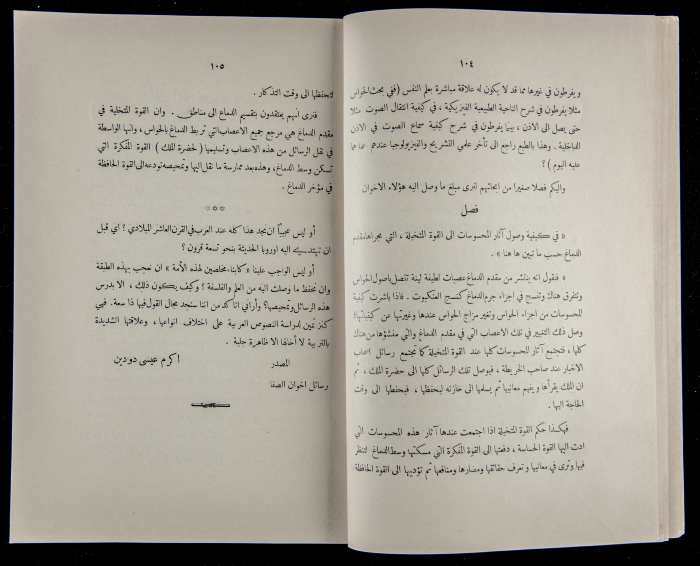 ١٠٤
ويفرطون في غيرها مما قد لا يكون له علاقة مباشرة بعلم النفس (ففي بحث الحواس
مثلا يفرطون في شرح الناحية الطبيعية الفيزيكية ، في كيفية انتقال الصوت مثلا
حتى يصل الى الاذن ، بينما يفرطون في شرح كيفية سماع الصوت في الاذن
الداخلية . وهذا بالطبع راجع الى تأخر علمي التشريح والفيزيولوجيا عندهم عما هما
عليه اليوم ) ؟
واليكم فصلا صغيرا من ابحاثهم لنرى مبلغ ما وصل اليه هؤلاء الاخوان
فصل
« في كيفية وصول آثار المحسوسات الى القوة المتخيلة ، التي مجراها مقدم
الدماغ حسب ما تبين ها هنا » .
« فنقول انه ينتشر من مقدم الدماغ عصبات لطيفة لينة تتصل باصول الحواس
وتتفرق هناك وتنسج في اجزاء جرم الدماغ كنسج العنكبوت . فاذا باشرت كيفية
المحسوسات من اجزاء الحواس وتغير مزاج الحواس عندها وغيرتها عن كيفياتها؛
وصل ذلك التغيير في تلك الاعصاب التي في مقدم الدماغ والتي منشؤها من هناك
كلها ، فتجتمع آثار المحسوسات كلها عند القوة المتخيلة كما تجتمع رسائل اصحاب
الاخبار عند صاحب الخريطة ، فيوصل تلك الرسائل كلها الى حضرة الملك ، ثم
ان الملك يقرأها ويفهم معانيها ثم يسلمها الى خازنه ليحفظها ، فيحفظها الى وقت
الحاجة اليها .
فهكذا حكم القوة المتخيلة اذا اجتمعت عندها آثار هذه المحسوسات التي
ادت اليها القوة الحساسة ، دفعتها الى القوة المفكرة التي مسكنها وسط الدماغ لتنظر
فيها وترى في معانيها وتعرف حقائقها ومضارها ومنافعها ثم تؤديها الى القوة الحافظة
١٠٥
لتحفظها الى وقت التذكار .
فنرى انهم يعتقدون بتقسيم الدماغ الى مناطق . وان القوة المتخيلة في
مقدم الدماغ هي مرجع جميع الاعصاب التي تربط الدماغ بالحواس ، وانها الواسطة
في نقل الرسائل من هذه الاعصاب وتسليمها ( لحضرة الملك ) القوة المفكرة التي
تسكن وسط الدماغ، وهذه بعد ممارسة ما نقل اليها وتمحيصه تودعه الى القوة الحافظة
في مؤخر الدماغ .
***
أو ليس عجيباً ان نجد هذا كله عند العرب في القرن العاشر الميلادي ؟ اي قبل
ان تهتدي اليه اوروبا الحديثة بنحو تسعة قرون ؟
أو ليس الواجب علينا « كأبناء مخلصين لهذه الأمة » ان نعجب بهذه الطبقة
وان نحفظ ما وصلت اليه من العلم والفلسفة ؟ وكيف يكون ذلك ، الا بدرس
هذه الرسائل وتمحيصها؟ وأراني اتأكد من اننا سنجد مجال القول فيها ذا سعة. فهي
كنز ثمين لدراسة النصوص العربية على اختلاف انواعها ، وعلاقتها الشديدة
بالتربية لا أخالها الا ظاهرة جلية .
اكرم عيسى دودين
المصدر
رسائل اخوان الصفا